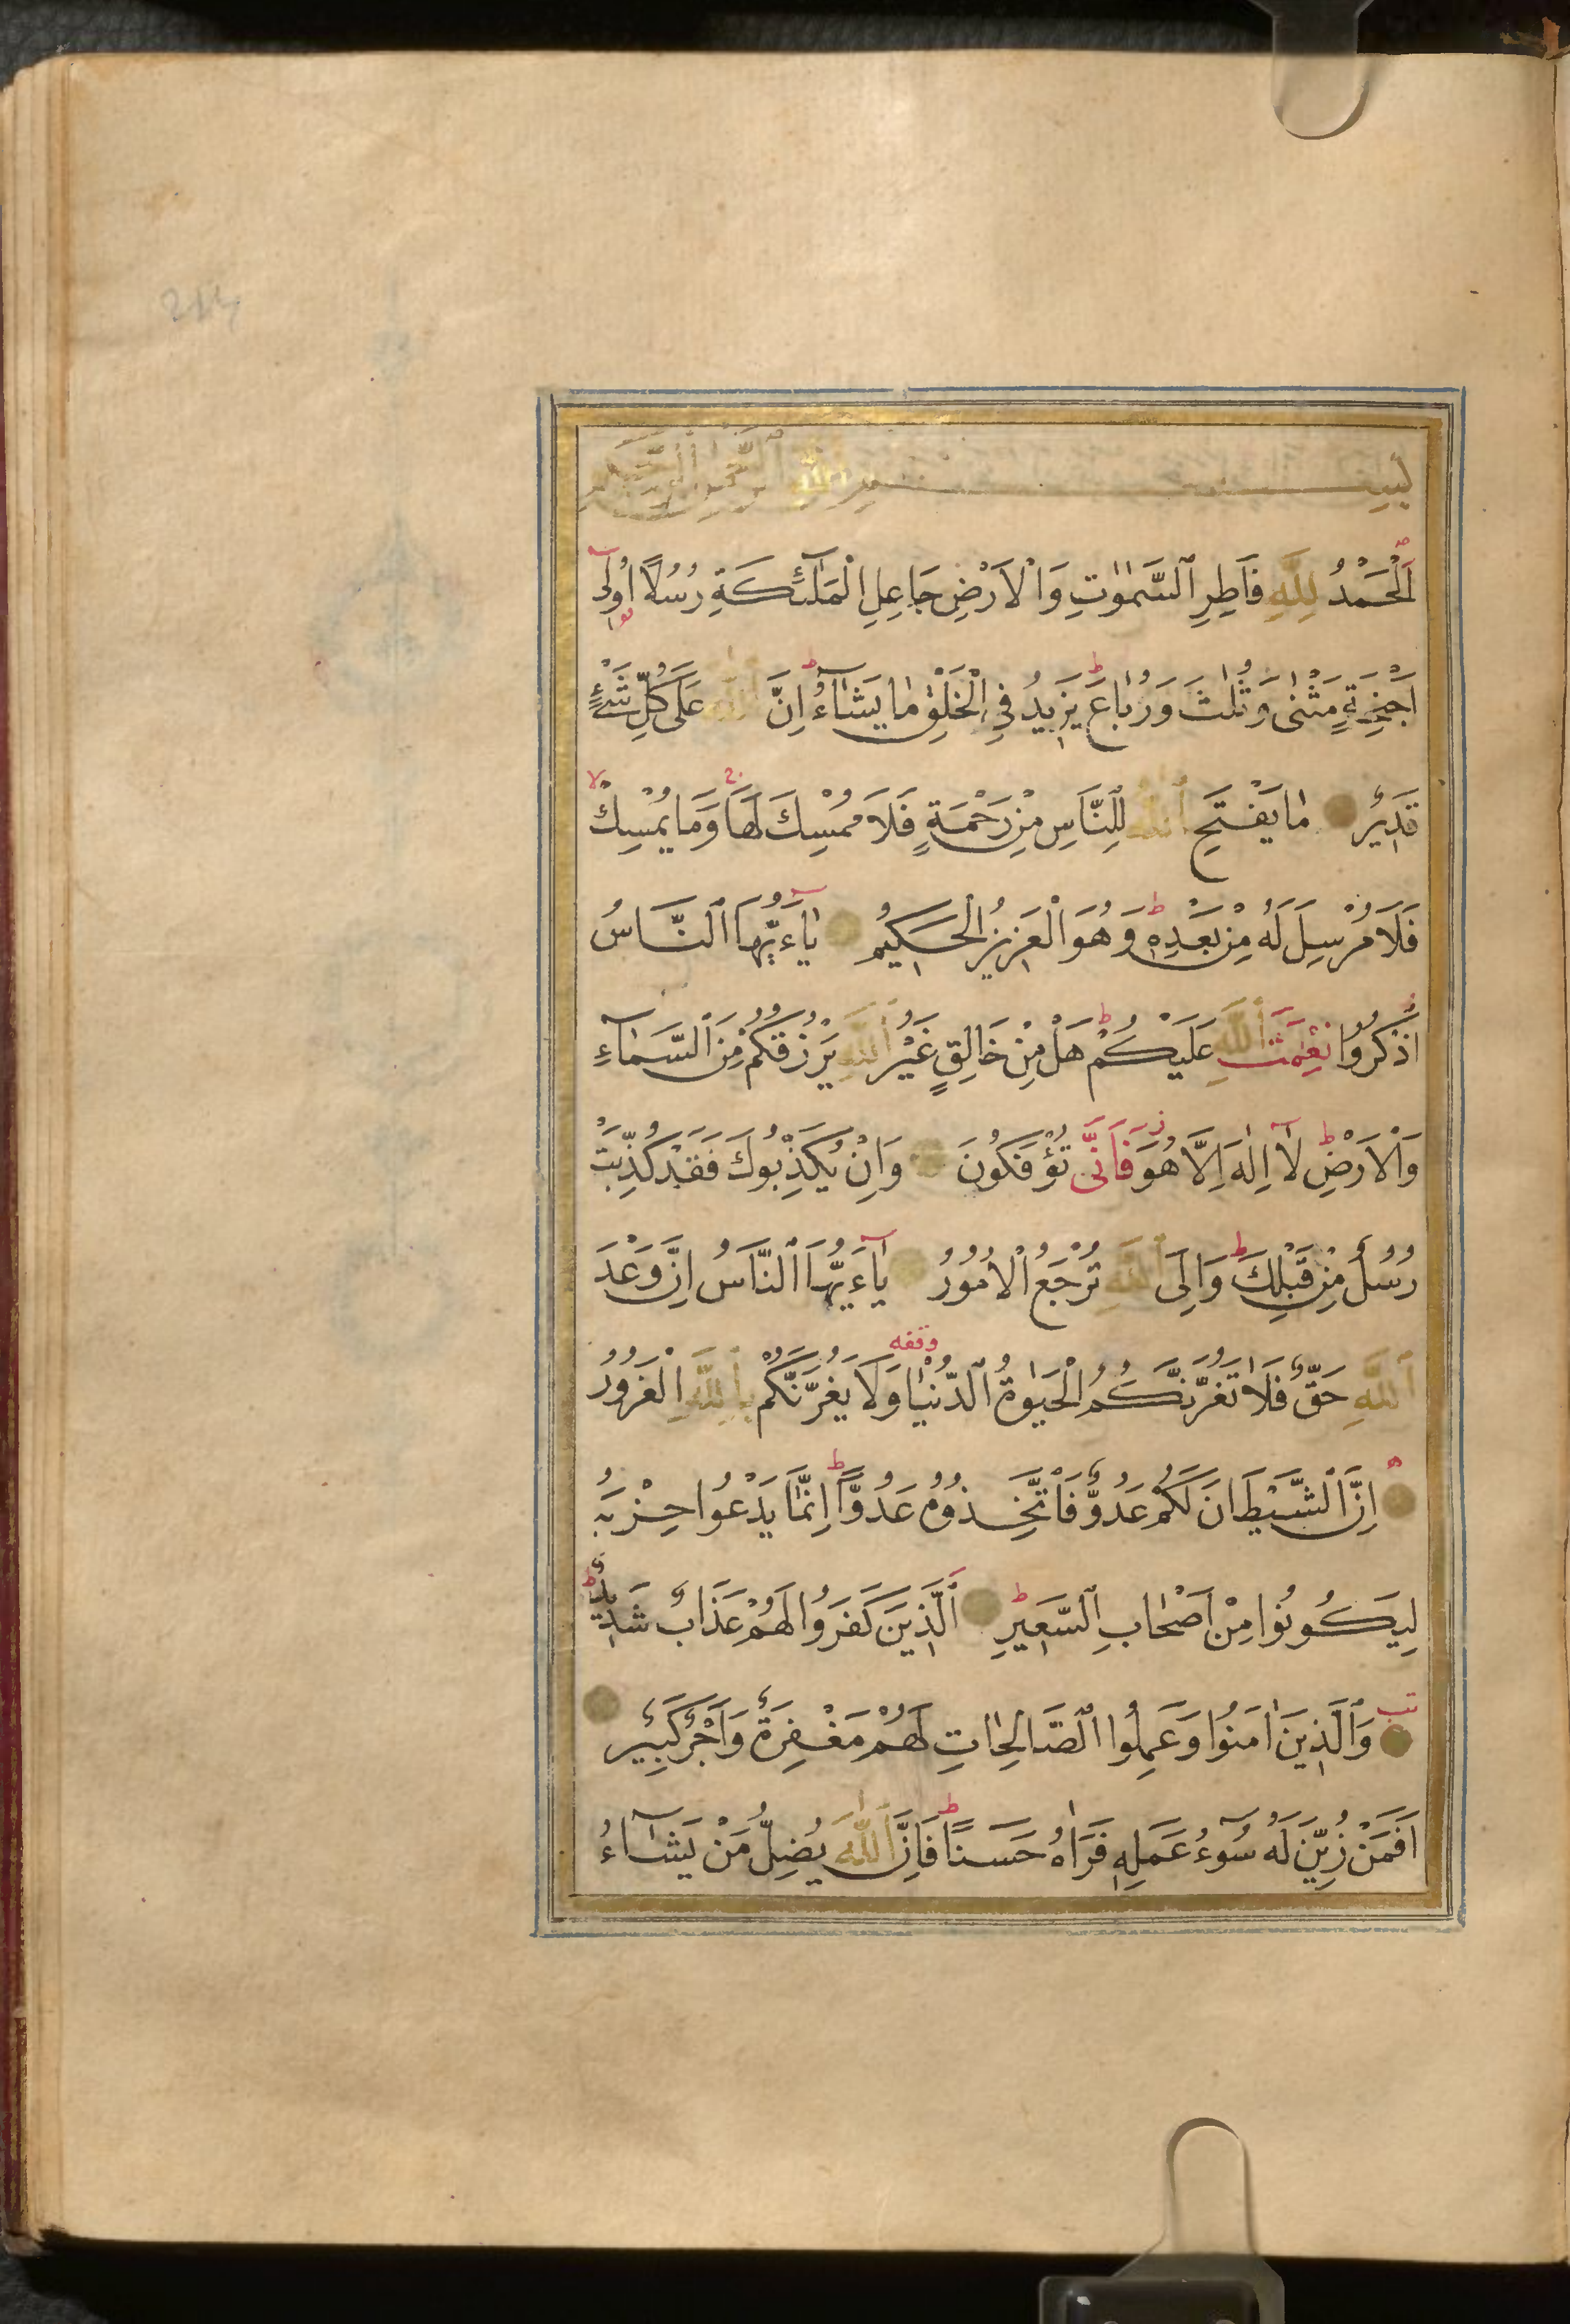 بِسْمِ اللهِ الرَّحْمٰنِ الرَّحِيمِ
اَلْحَمْدُ لِلّٰهِ فَاطِرِ ٱلسَّمٰوٰتِ وَالْاَرْضِ جَاعِلِ الْمَلٰٓئِكَةِ رُسُلًا اُولِٓى
اَجْنِحَةٍ مَثْنٰى وَثُلٰثَ وَرُبَاعَ ط يَزِيدُ فِى الْخَلْقِ مَا يَشَآءُ ط اِنَّ ٱللّٰهَ عَلَى كُلِّ شَىْءٍ
قَدِيرٌ مَا يَفْتَحِ ٱللّٰهُ لِلنَّاسِ مِنْ رَحْمَةٍ فَلَا مُمْسِكَ لَهَا ج وَمَا يُمْسِكْ لا
فَلَا مُرْسِلَ لَهُ مِنْ بَعْدِهِ ط وَهُوَ الْعَزِيزُ الْحَكِيمُ يَآءَيُّهَا ٱلنَّاسُ
اذْكُرُوا نِعْمَتَ ٱللّٰهِ عَلَيْكُمْ ط هَلْ مِنْ خَالِقٍ غَيْرُ ٱللّٰهِ يَرْزُقُكُمْ مِنَ ٱلسَّمَآءِ
وَالْاَرْضِ ط لَٓا اِلٰهَ اِلَّا هُوَ ز فَاَنّٰى تُؤْفَكُونَ وَاِنْ يُكَذِّبُوكَ فَقَدْ كُذِّبَتْ
رُسُلٌ مِنْ قَبْلِكَ ط وَاِلَى ٱللّٰهِ تُرْجَعُ الْاُمُورُ يَآءَيُّهَا ٱلنَّاسُ اِنَّ وَعْدَ
ٱللّٰهِ حَقٌّ فَلَا تَغُرَّنَّكُمُ الْحَيٰوةُ ٱلدُّنْيَا وقفه وَلَا يَغُرَّنَّكُمْ بِاللّٰهِ الْغَرُورُ
اِنَّ ٱلشَّيْطَانَ لَكُمْ عَدُوٌّ فَاتَّخِذُوهُ عَدُوًّا ط اِنَّمَا يَدْعُوا حِزْبَهُ
لِيَكُونُوا مِنْ اَصْحَابِ ٱلسَّعِيرِ اَلَّذِينَ كَفَرُوا لَهُمْ عَذَابٌ شَدِيدٌ ط
وَٱلَّذِينَ اٰمَنُوا وَعَمِلُوا ٱلصَّالِحَاتِ لَهُمْ مَغْفِرَةٌ وَاَجْرٌ كَبِيرٌ
اَفَمَنْ زُيِّنَ لَهُ سُوٓءُ عَمَلِهِ فَرَاٰهُ حَسَنًا ط فَاِنَّ ٱللّٰهَ يُضِلُّ مَنْ يَشَآءُ